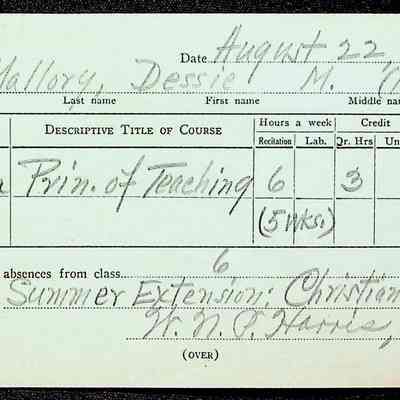 Date August 22,
Mallory, Dessie M.
Last name First name Middle na
DESCRIPTIVE TITLE OF COURSE Hours a week Credit
Recitation Lab. Qr. Hrs Un
Prin. of Teaching 6 3
(5 wks.)
absences from class 6
Summer Extension: Christian
W. N. P. Harris,
(OVER)